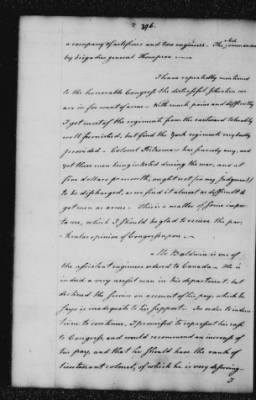 296.
a company of artificers and two engineers. The whole commanded
by brigadier general Thompson
I have repeatedly mentioned
to the honorable Congress the distressful situation we
are in for want of arms. With much pains and difficulty
I got most of the regiments from the eastward tolerably
well furnished, but find the York regiments very badly
provided. Colonel Ritzema's has scarcely any, and
yet these men being inlisted during the war, and at
five dollars per month, ought not (in my judgment)
to be discharged, as we find it almost as difficult to
get men as arms. This is a matter of some impor
tance, which I should be glad to receive the par
ticular opinion of Congress upon.
Mr Baldwin is one of
the assistant engineers ordered to Canada. He is
indeed a very useful man in his department, but
declined the service on account of his pay, which he
says is inadequate to his support. In order to induce
him to continue, I promised to represent his case
to Congress, and would recommend an increase of
his pay, and that he should have the rank of
lieutenant colonel, of which he is very deserving.
I